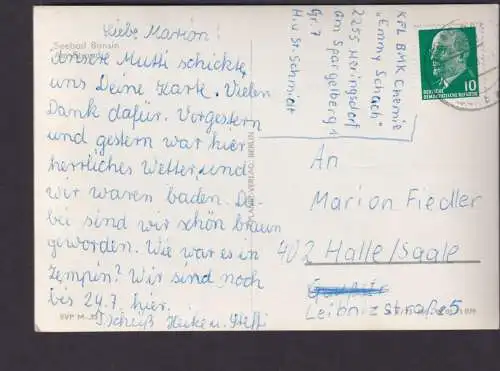 Liebe Marion!
Seebad Bansin
Unsere Mutti schickte
uns Deine Karte. Vielen
Dank dafür. Vorgestern
und gestern war hier
herrliches Wetter, und
wir waren baden. Da-
bei sind wir schön braun
geworden. Wie war es in
Zempin? Wir sind noch
bis 24.7. hier.
Tschüß Heike u. Steffi
BVP M-
PLANET-VERLAG BERLIN
KFL BMK Chemie
"Emmy Schach"
2255 Heringsdorf
am Spargelberg 1
Gr. 7
H. u. St. Schmidt
10
An
Marion Fiedler
402 Halle/Saale
Leibnizstraße 5